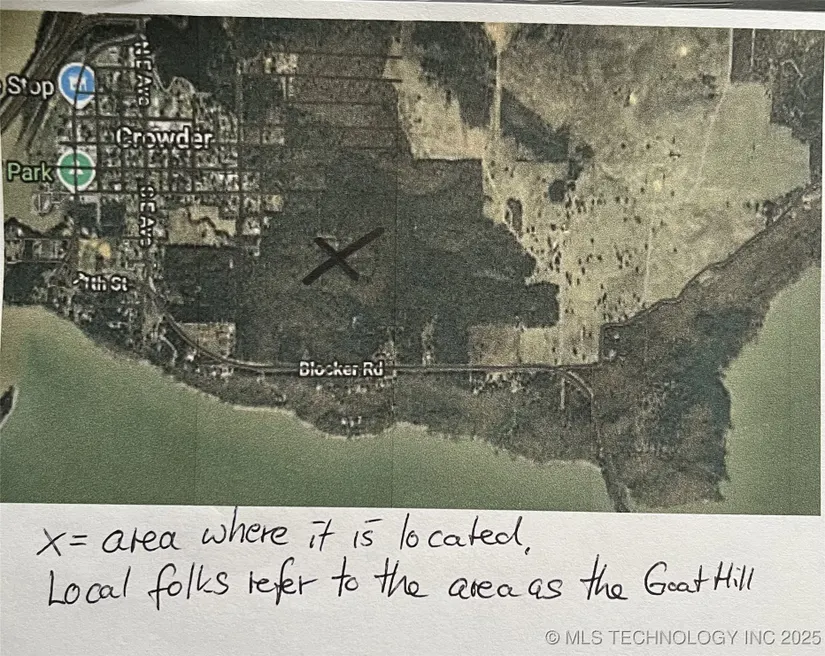 NE Ave
Stop
Crowder
Park
SE Ave
7th St
Blocker Rd
X
X = area where it is located,
Local folks refer to the area as the Goat Hill
© MLS TECHNOLOGY INC 2025